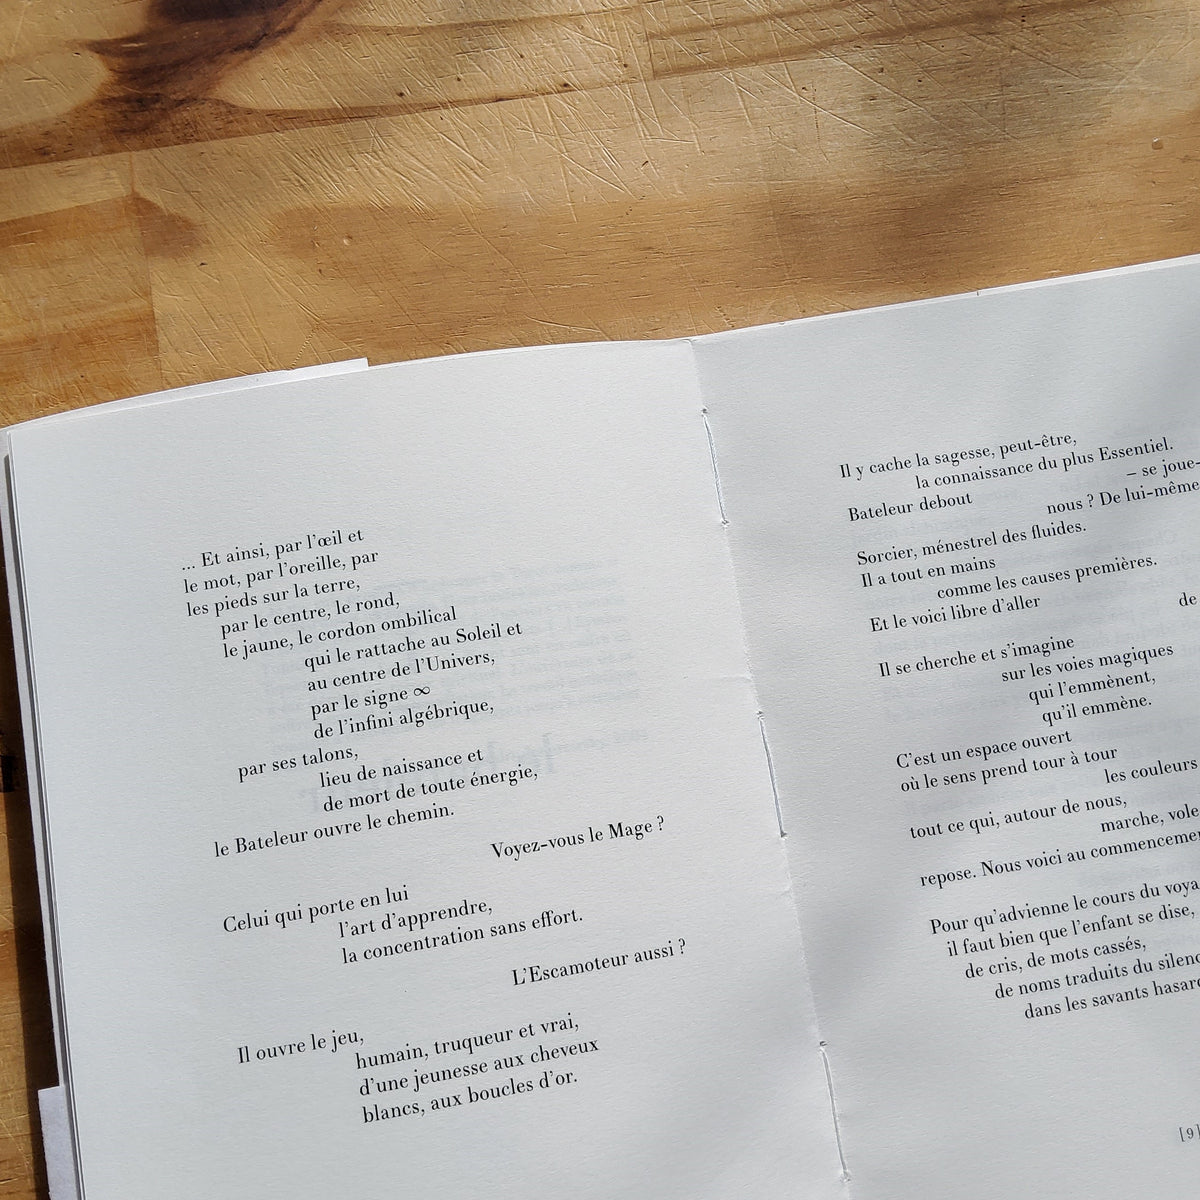 ... Et ainsi, par l'œil et
le mot, par l'oreille, par
les pieds sur la terre,
par le centre, le rond,
le jaune, le cordon ombilical
qui le rattache au Soleil et
au centre de l'Univers,
par le signe ∞
de l'infini algébrique,
par ses talons,
lieu de naissance et
de mort de toute énergie,
le Bateleur ouvre le chemin.
Voyez-vous le Mage ?
Celui qui porte en lui
l'art d'apprendre,
la concentration sans effort.
L'Escamoteur aussi ?
Il ouvre le jeu,
humain, truqueur et vrai,
d'une jeunesse aux cheveux
blancs, aux boucles d'or.
Il y cache la sagesse, peut-être,
la connaissance du plus Essentiel.
Bateleur debout – se joue-
nous ? De lui-même
Sorcier, ménestrel des fluides.
Il a tout en mains
comme les causes premières.
Et le voici libre d'aller de
Il se cherche et s'imagine
sur les voies magiques
qui l'emmènent,
qu'il emmène.
C'est un espace ouvert
où le sens prend tour à tour
les couleurs
tout ce qui, autour de nous,
marche, vole
repose. Nous voici au
Pour qu'advienne le cours du
il faut bien que l'enfant se dise,
de cris, de mots cassés,
de noms traduits du
dans les savants
[9]